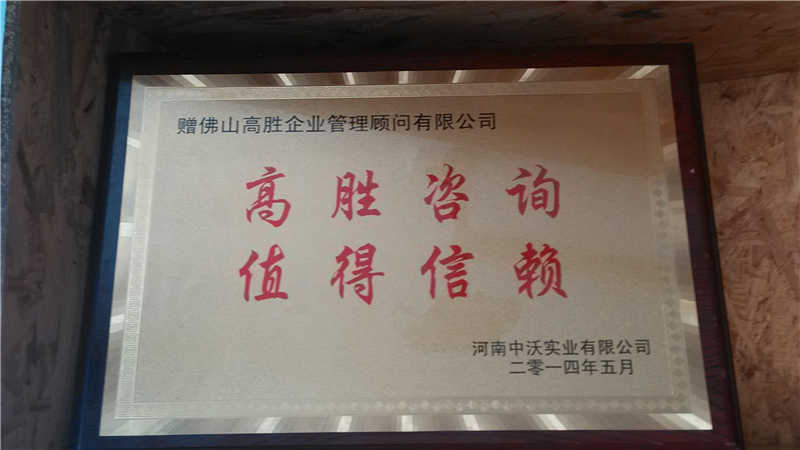 赠佛山高胜企业管理顾问有限公司
高胜咨询
值得信赖
河南中沃实业有限公司
二零一四年五月